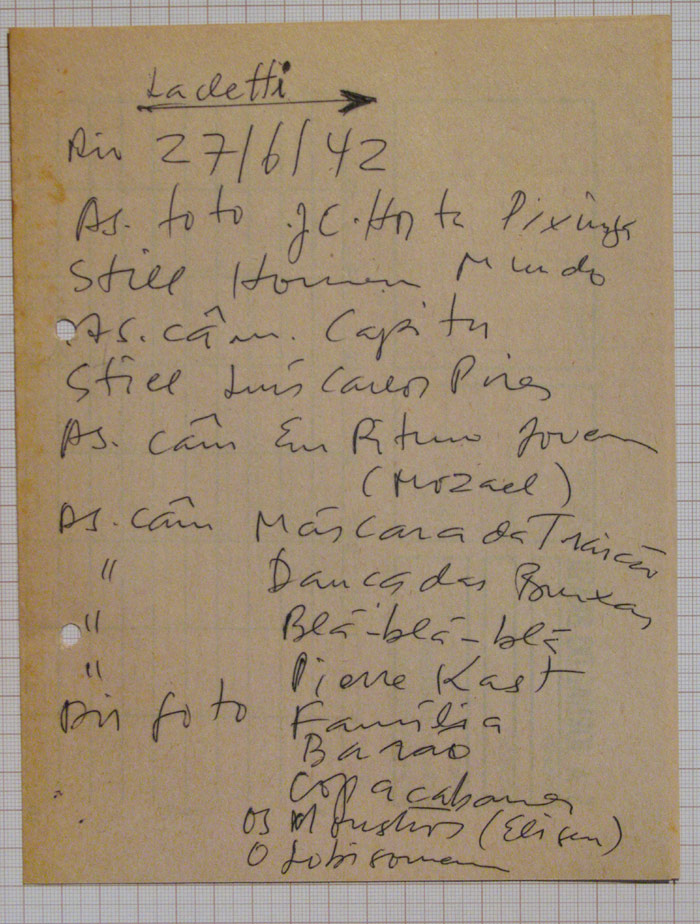 Ladetti
Rio 27/6/42
As. foto J.C. Horta Pixinga
Still Homem Mundo
As. câm. Capitu
Still Luís Carlos Pires
As. câm Em Ritmo Jovem
(Mozael)
As. câm Máscara da Traição
" Danca das Bruxas
" Blá-blá-blá
" Pierre Kast
Dir foto Família
Barão
Copacabana
Os Monstros (Eliseu)
O Lobisomem